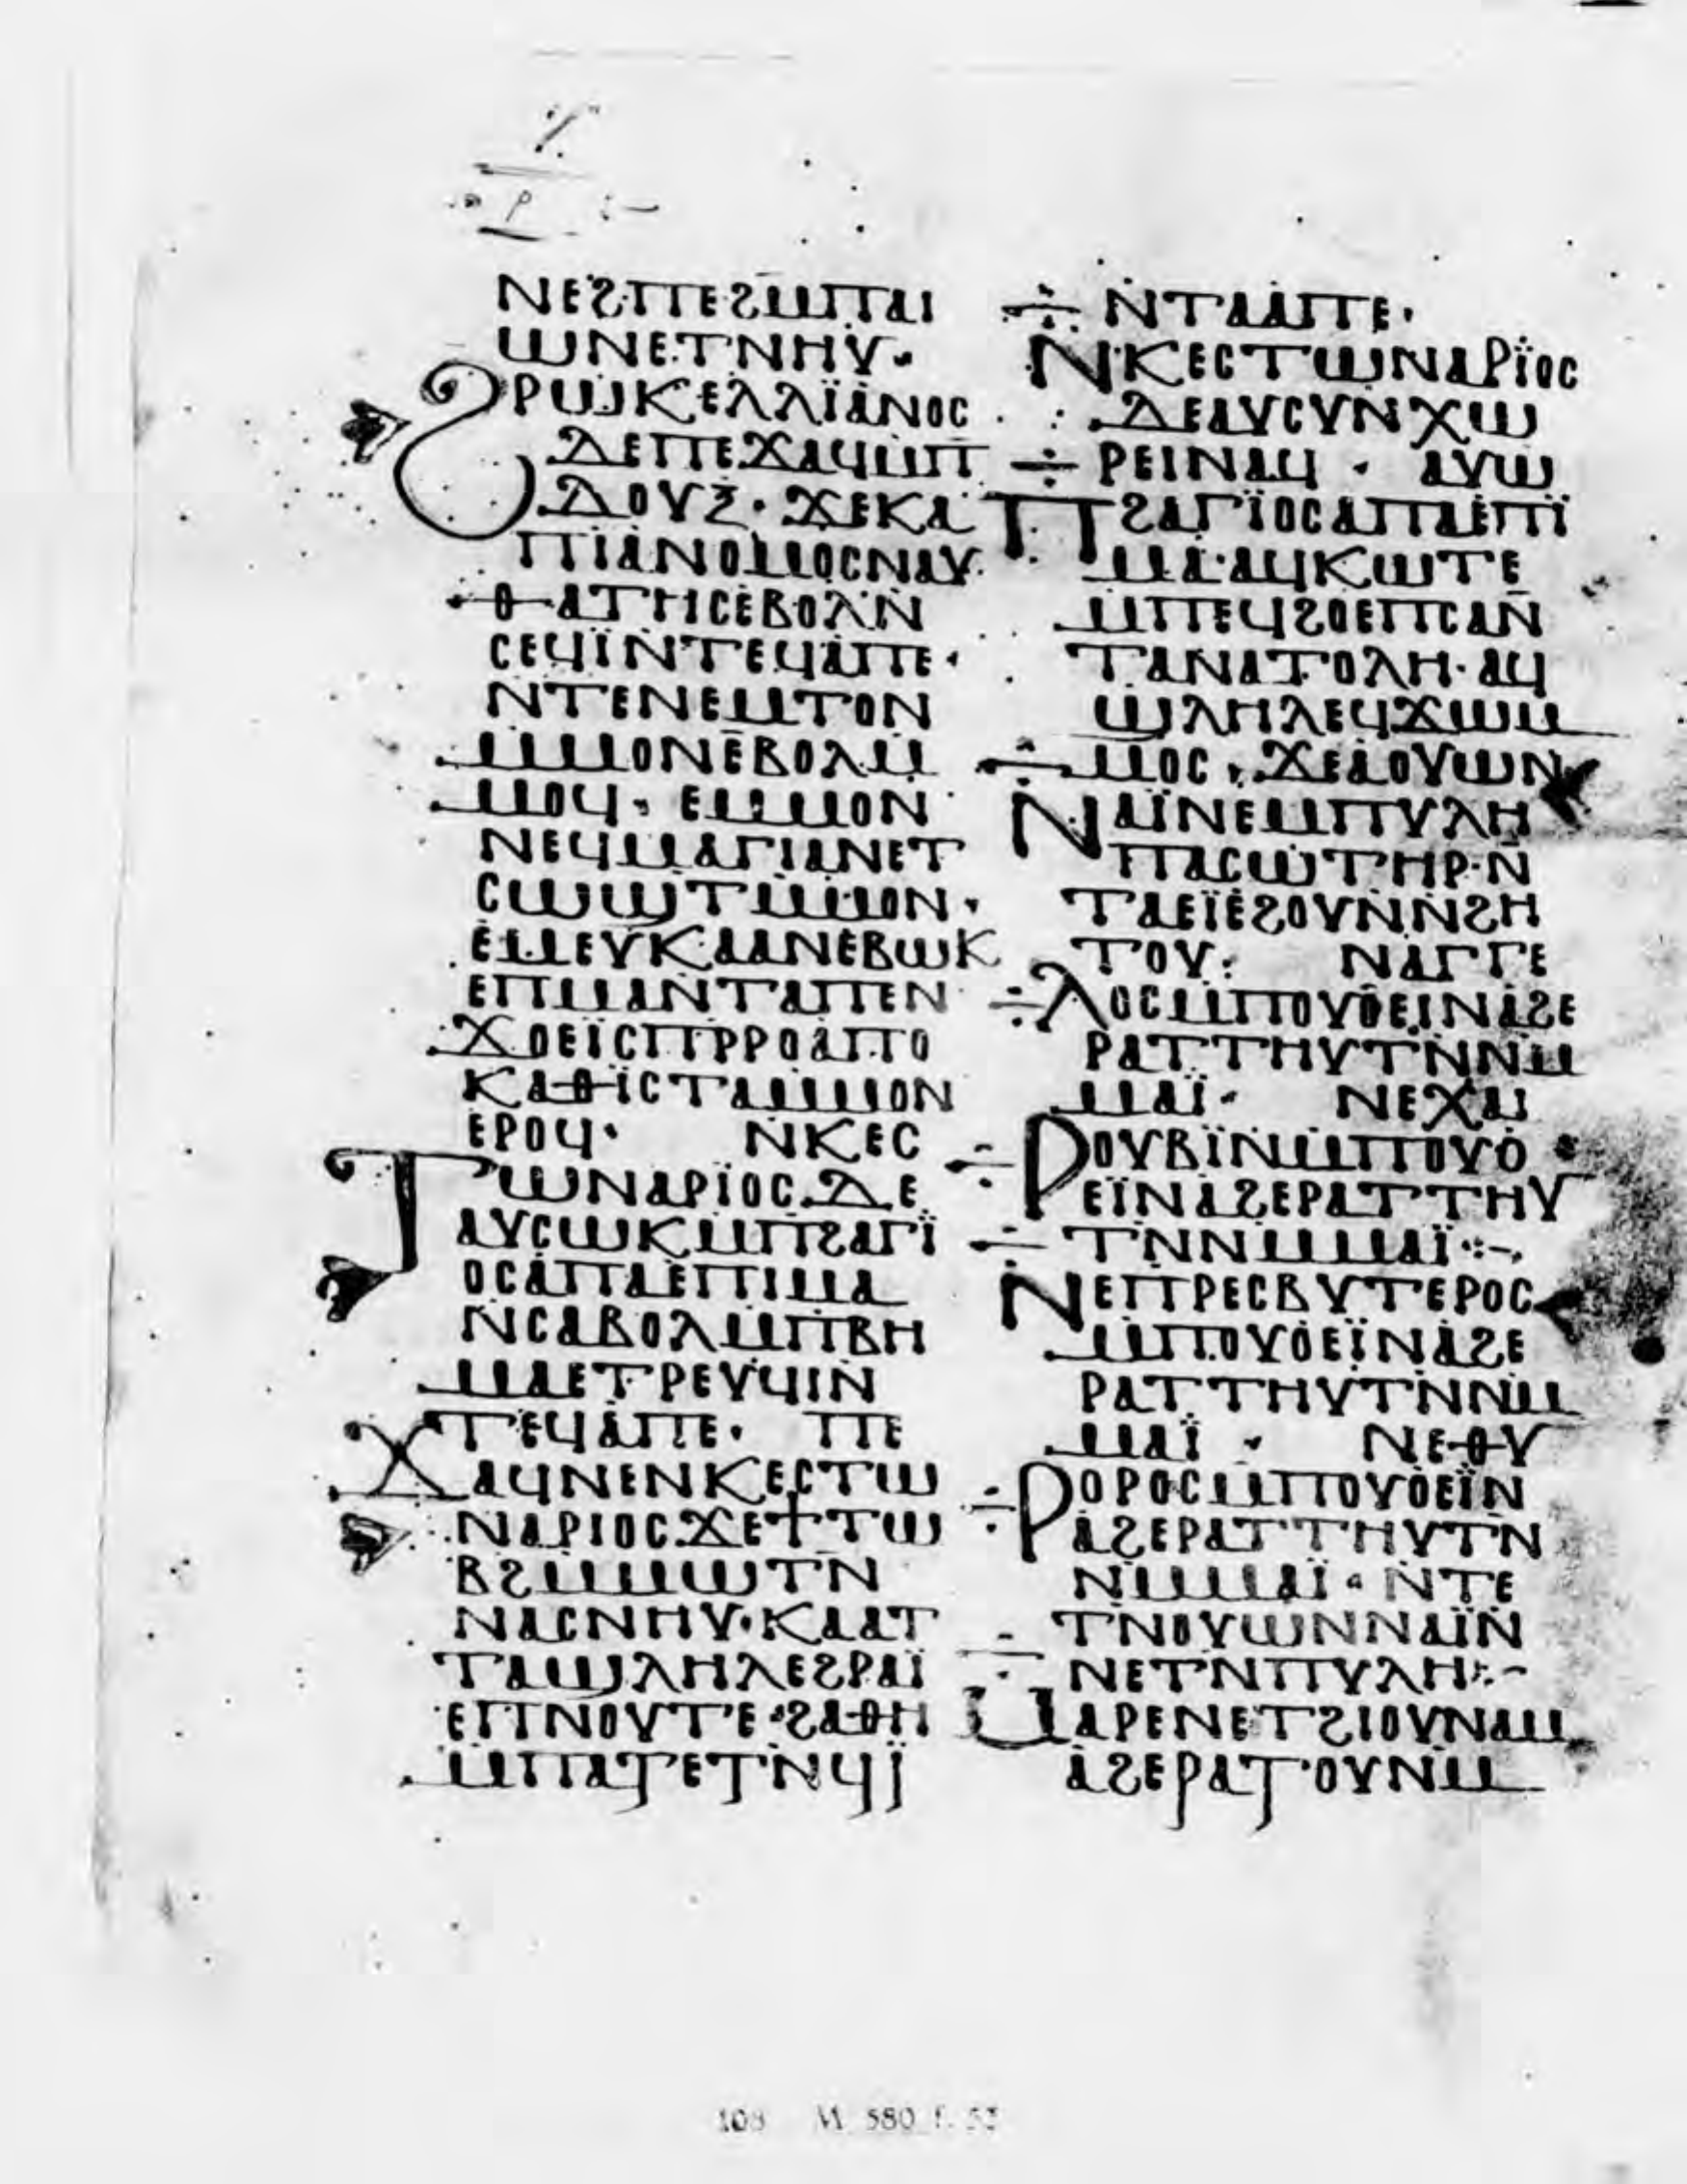 ⲣ
ⲛⲉϩⲡⲉϩⲙⲡⲁⲓ
ⲱⲛⲉⲧⲛⲏⲩ·
ϩⲣⲱⲕⲉⲗⲗⲓ̈ⲁⲛⲟⲥ
ⲇⲉⲡⲉϫⲁϥⲙⲡ
ⲇⲟⲩⲝ· ϫⲉⲕⲁ
ⲡⲓⲁⲛⲟⲙⲟⲥⲛⲁⲩ·
ⲑⲁⲧⲏⲥⲉⲃⲟⲗⲛ̄
ⲥⲉϥⲓ̈ⲛ̄ⲧⲉϥⲁⲡⲉ·
ⲛⲧⲉⲛⲉⲙⲧⲟⲛ
ⲙⲙⲟⲛⲉⲃⲟⲗⲙ̄
ⲙⲟϥ· ⲉⲙⲙⲟⲛ
ⲛⲉϥⲙⲁⲅⲓⲁⲛⲉⲧ
ⲥⲱϣⲧⲙ̄ⲙⲟⲛ·
ⲉⲙⲉⲩⲕⲁⲁⲛⲉⲃⲱⲕ
ⲉⲡⲙⲁⲛⲧⲁⲡⲉⲛ
ϫⲟⲉⲓ̈ⲥⲡⲣ̄ⲣⲟⲁⲡⲟ
ⲕⲁⲑⲓⲥⲧⲁⲙⲙⲟⲛ
ⲉⲣⲟϥ· ⲛⲕⲉⲥ
ⲧⲱⲛⲁⲣⲓ̈ⲟⲥⲇⲉ
ⲁⲩⲥⲱⲕⲙⲡϩⲁⲅⲓ̈
ⲟⲥⲁⲡⲁⲉⲡⲓⲙⲁ
ⲛ̄ⲥⲁⲃⲟⲗⲙⲡⲃⲏ
ⲙⲁⲉⲧⲣⲉⲩϥⲓⲛ̄
ⲧⲉϥⲁⲡⲉ· ⲡⲉ
ϫⲁϥⲛⲉⲛⲕⲉⲥⲧⲱ
ⲛⲁⲣⲓⲟⲥϫⲉϯⲧⲱ
ⲃϩⲙ̄ⲙⲱⲧⲛ̄
ⲛⲁⲥⲛⲏⲩ·ⲕⲁⲁⲧ
ⲧⲁϣⲗⲏⲗⲉϩⲣⲁⲓ̈
ⲉⲡⲛⲟⲩⲧⲉ·ϩⲁⲑⲏ
ⲙⲡⲁⲧⲉⲧⲛ̄ϥⲓ̈
ⲛ̄ⲧⲁⲁⲡⲉ·
ⲛ̄ⲕⲉⲥⲧⲱⲛⲁⲣⲓ̈ⲟⲥ
ⲇⲉⲁⲩⲥⲩⲛⲭⲱ
ⲣⲉⲓⲛⲁϥ · ⲁⲩⲱ
ⲡϩⲁⲅⲓ̈ⲟⲥⲁⲡⲁⲉⲡⲓ̈
ⲙⲁ·ⲁϥⲕⲱⲧⲉ
ⲙⲡⲉϥϩⲟⲉⲡⲥⲁⲛ̄
ⲧⲁⲛⲁⲧⲟⲗⲏ·ⲁϥ
ϣⲗⲏⲗⲉϥϫⲱⲙ
ⲙⲟⲥ· ϫⲉⲁⲟⲩⲱⲛ
ⲛⲁⲓ̈ⲛⲉⲙⲡⲩⲗⲏ
ⲡⲁⲥⲱⲧⲏⲣ·ⲛ̄
ⲧⲁⲉⲓ̈ⲉϩⲟⲩⲛⲛ̄ϩⲏ
ⲧⲟⲩ: ⲛⲁⲅⲅⲉ
ⲗⲟⲥⲙⲡⲟⲩⲟⲉⲓⲛⲁϩⲉ
ⲣⲁⲧⲧⲏⲩⲧⲛ̄ⲛⲙ
ⲙⲁⲓ̈· ⲛⲉⲭⲁⲓ
ⲣⲟⲩⲃⲓ̈ⲛⲙⲡⲟⲩⲟ
ⲉⲓ̈ⲛⲁϩⲉⲣⲁⲧⲧⲏⲩ
ⲧⲛ̄ⲛⲙⲙⲁⲓ̈·:-
ⲛⲉⲡⲣⲉⲥⲃⲩⲧⲉⲣⲟⲥ
ⲙⲡⲟⲩⲟⲉⲓ̈ⲛⲁϩⲉ
ⲣⲁⲧⲧⲏⲩⲧⲛ̄ⲛⲙ
ⲙⲁⲓ̈ · ⲛⲉⲑⲩ
ⲣⲟⲣⲟⲥⲙⲡⲟⲩⲟⲉⲓ̈ⲛ
ⲁϩⲉⲣⲁⲧⲧⲏⲩⲧⲛ̄
ⲛⲙⲙⲁⲓ̈· ⲛ̄ⲧⲉ
ⲧⲛⲟⲩⲱⲛⲛⲁⲓ̈ⲛ̄
ⲛⲉⲧⲛⲡⲩⲗⲏ:-
ⲙⲁⲣⲉⲛⲉⲧϩⲓⲟⲩⲛⲁⲙ
ⲁϩⲉⲣⲁⲧⲟⲩⲛⲙ̄
108 M 580 f. 53